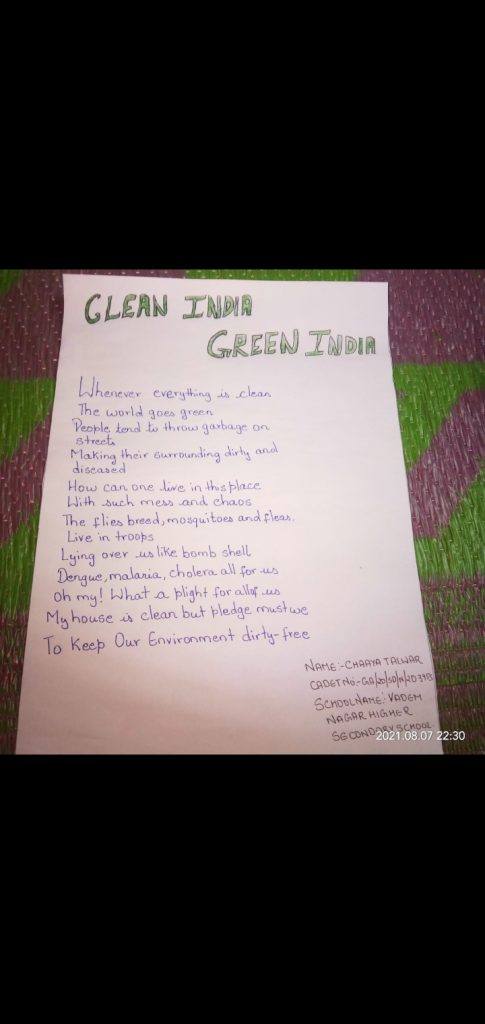 CLEAN INDIA
GREEN INDIA
Whenever everything is clean
The world goes green
People tend to throw garbage on
streets
Making their surrounding dirty and
diseased
How can one live in this place
With such mess and chaos
The flies breed, mosquitoes and fleas.
Live in troops
Lying over us like bomb shell
Dengue, malaria, cholera all for us
Oh my! What a plight for all of us
My house is clean but pledge must we
To Keep Our Environment dirty-free
NAME:- CHAAYA TALWAR
CADET NO:-
SCHOOL NAME: VADEM
NAGAR HIGHER
SECONDARY SCHOOL
2021.08.07 22:30